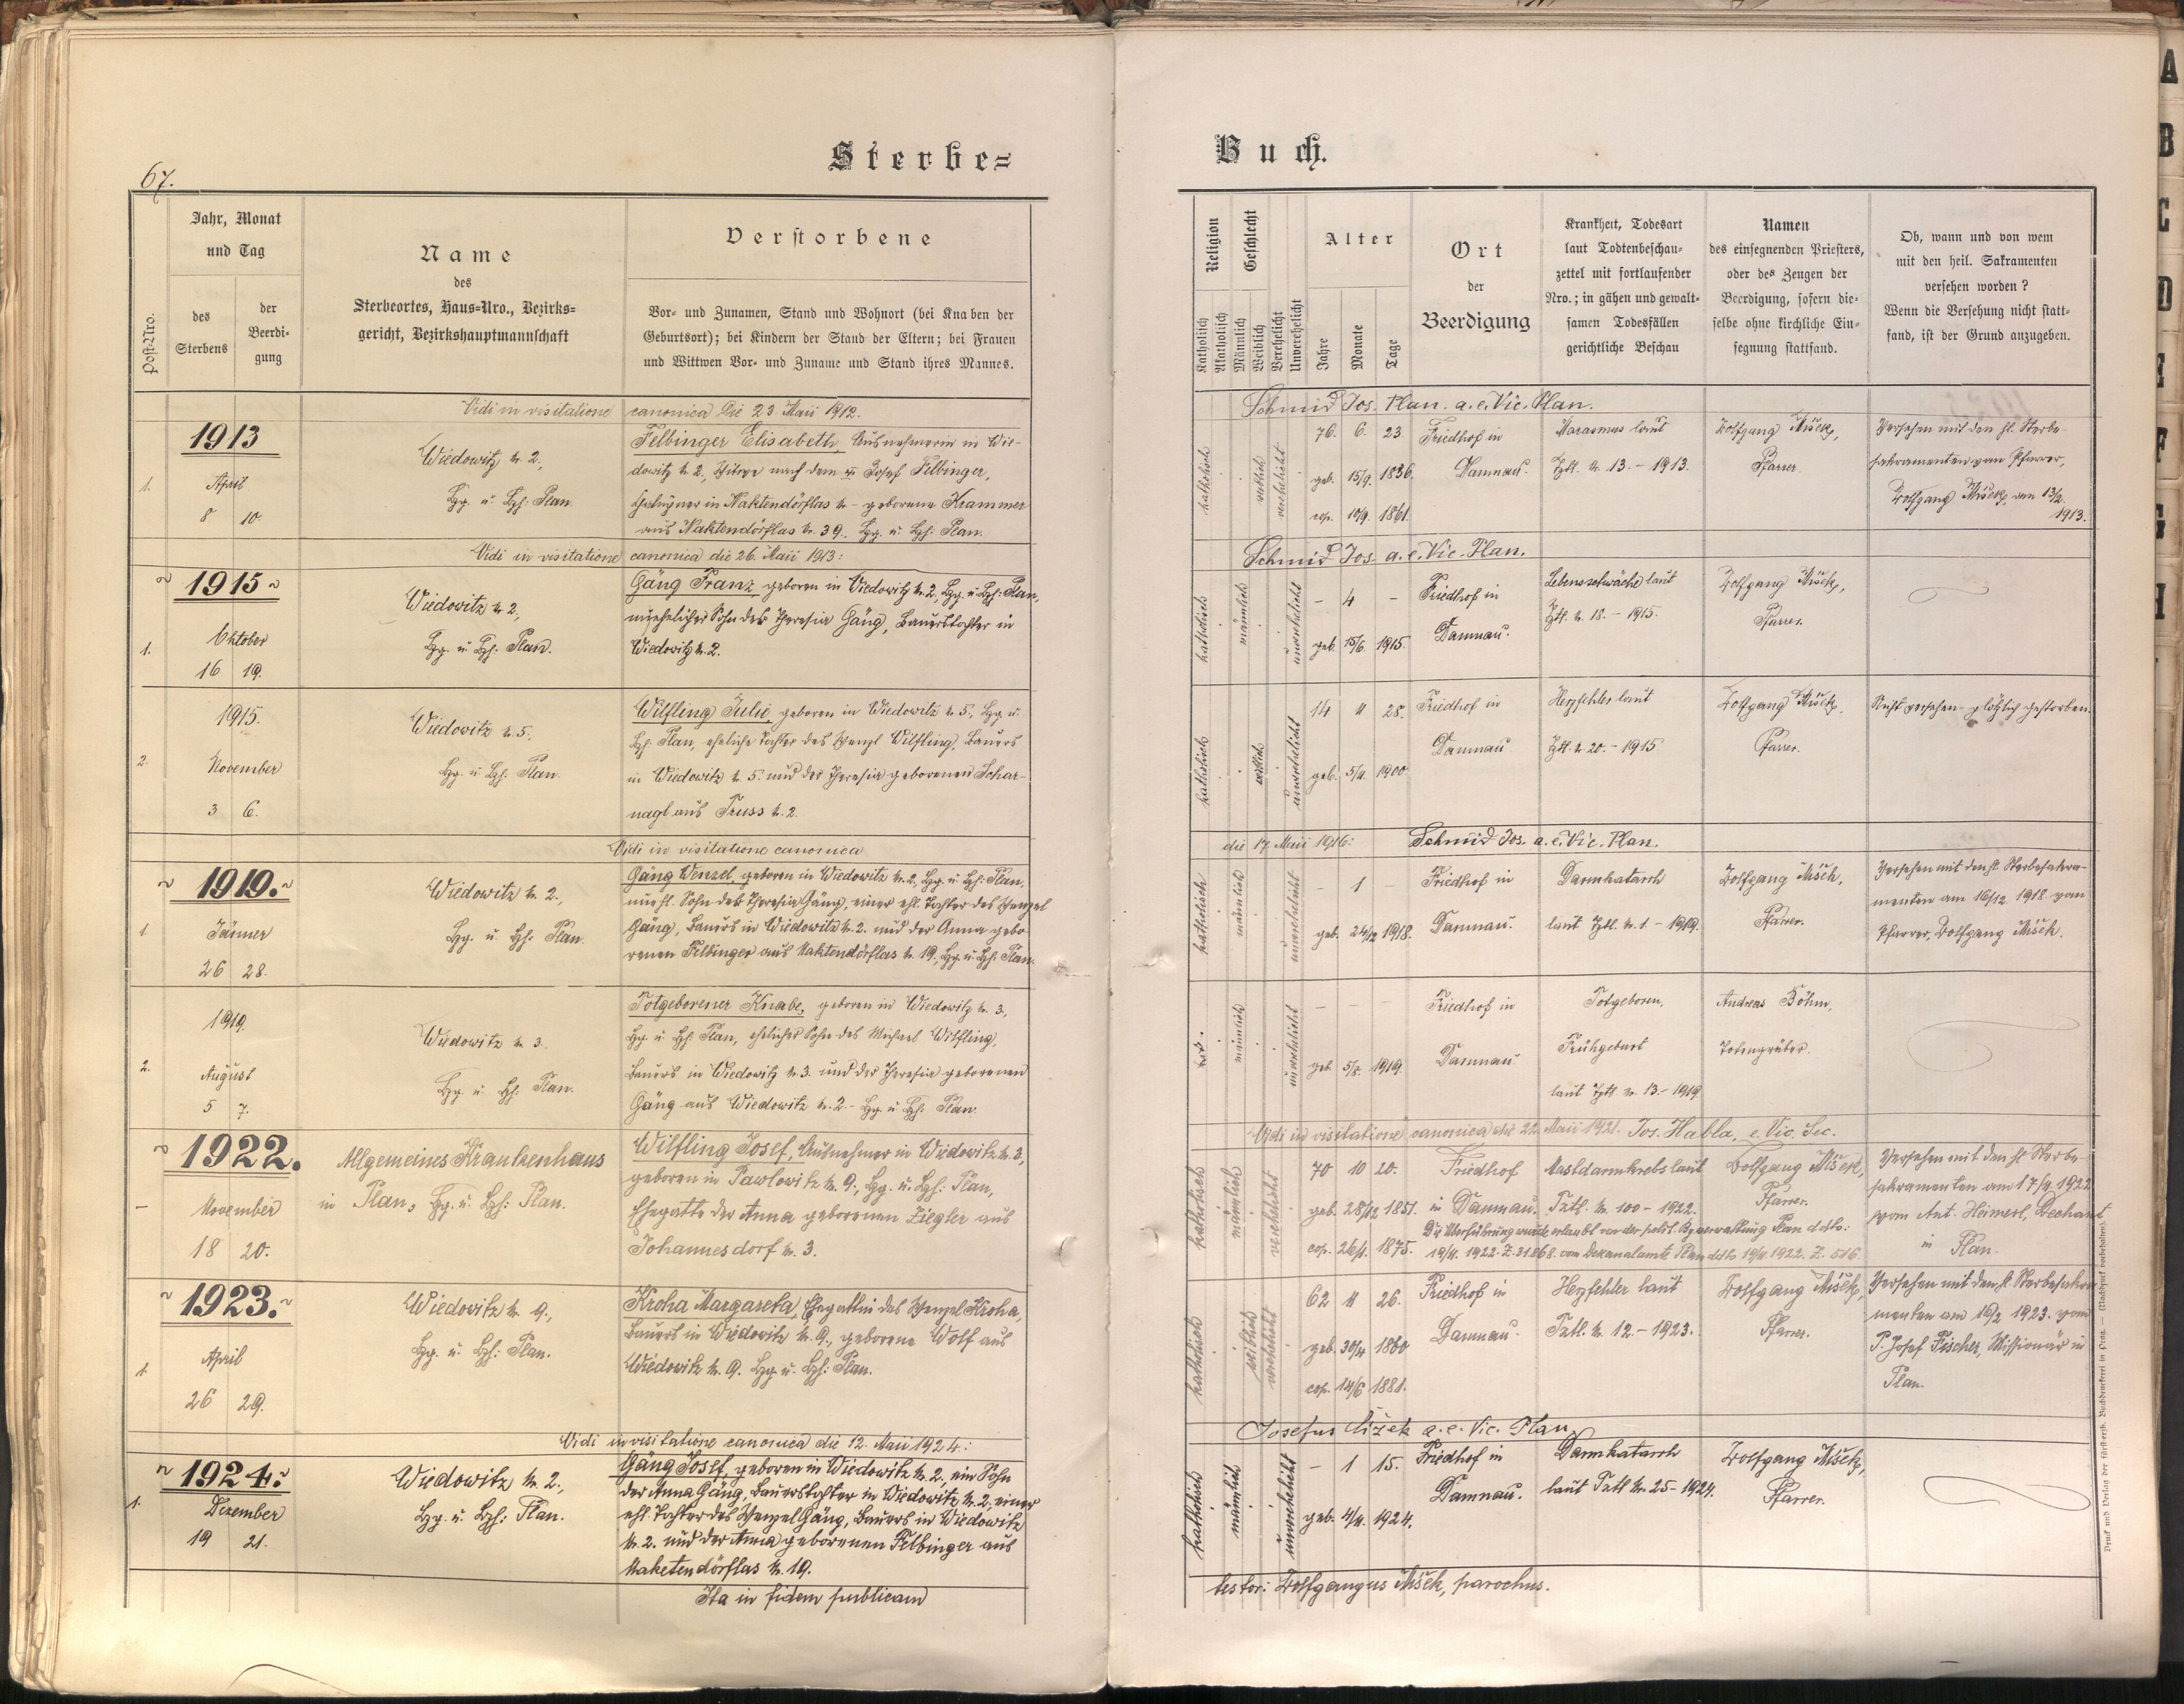 67.
Sterbe=
Jahr, Monat
und Tag
des
Sterbens
der
Beerdi-
gung
Post-Nro.
Name
des
Sterbeortes, Haus-Nro., Bezirks-
gericht, Bezirkshauptmannschaft
Verstorbene
Vor- und Zunamen, Stand und Wohnort (bei Knaben der
Geburtsort); bei Kindern der Stand der Eltern; bei Frauen
und Wittwen Vor- und Zuname und Stand ihres Mannes.
Vidi in visitatione canonica Die 23. Maii 1912.
1913
1.
April
8 10.
Wiedowitz N. 2.,
Bzg. u. Bzh: Plan.
Felbinger Elisabeth, Ausnehmerin in Wie-
dowitz N. 2, Witwe nach dem Josef Felbinger,
in Naktendörflas N. - geborene Krammer
aus Naktendörflas N. 39. Bzg. u. Bzh: Plan.
Vidi in visitatione canonica die 26. Maii 1913:
1915
1.
Oktober
16 19.
Wiedowitz N. 2,
Bzg. u. Bzh: Plan.
Gäng Franz, geboren in Wiedowitz N. 2, Bzg. u. Bzh: Plan,
unehelicher Sohn der Theresia Gäng, Bauerstochter in
Wiedowitz N. 2.
1915.
2.
November
3 6.
Wiedowitz N. 5.
Bzg. u. Bzh: Plan.
Wilfling Julie, geboren in Wiedowitz N. 5., Bzg. u.
Bzh: Plan, eheliche Tochter des Wenzl Wilfling, Bauers
in Wiedowitz N. 5. und der Theresia geborenen Schar-
nagl aus Truss N. 2.
Vidi in visitatione canonica
1919.
1.
Jänner
26 28.
Wiedowitz N. 2.,
Bzg. u. Bzh: Plan.
Gäng Wenzel, geboren in Wiedowitz N. 2, Bzg. u. Bzh: Plan,
unehl. Sohn der Theresia Gäng, einer ehl. Tochter des Wenzel
Gäng, Bauers in Wiedowitz N. 2. und der Anna gebo-
renen Felbinger aus Naktendörflas N. 19., Bzg. u. Bzh: Plan.
1919.
2.
August
5 7.
Wiedowitz N. 3.
Bzg. u. Bzh: Plan.
Totgeborener Knabe, geboren in Wiedowitz N. 3,
Bzg. u. Bzh: Plan, ehelicher Sohn des Michael Wilfling,
Bauers in Wiedowitz N. 3. und der Theresia geborenen
Gäng aus Wiedowitz N. 2 - Bzg. u. Bzh: Plan.
1922.
-
November
18 20.
Allgemeines Krankenhaus
in Plan, Bzg. u. Bzh: Plan.
Wilfling Josef, Ausnehmer in Wiedowitz N. 3,
geboren in Pawlowitz N. 9., Bzg. u. Bzh: Plan,
Ehegatte der Anna geborenen Ziegler aus
Johannesdorf N. 3.
1923.
1.
April
26 29.
Wiedowitz N. 9.,
Bzg. u. Bzh: Plan.
Kroha Margareta, Ehegattin des Wenzel Kroha,
Bauers in Wiedowitz N. 9., geborene Wolf aus
Wiedowitz N. 9. Bzg. u. Bzh: Plan.
Vidi in visitatione canonica die 12. Maii 1924:
1924.
1.
Dezember
19 21.
Wiedowitz N. 2.,
Bzg. u. Bzh: Plan.
Gäng Josef, geboren in Wiedowitz N. 2, ein Sohn
der Anna Gäng, Bauerstochter in Wiedowitz N. 2, einer
ehl. Tochter des Wenzel Gäng, Bauers in Wiedowitz
N. 2. und der Anna geborenen Felbinger aus
Naketendörflas N. 19.
Ita in fidem publicam
Buch.
Religion
Geschlecht
Katholisch
Akatholisch
Männlich
Weiblich
Verehelicht
Unverehelicht
Alter
Jahre
Monate
Tage
Ort
der
Beerdigung
Krankheit, Todesart
laut Todtenbeschau-
zettel mit fortlaufender
Nro.; in gähen und gewalt-
samen Todesfällen
gerichtliche Beschau
Namen
des einsegnenden Priesters,
oder des Zeugen der
Beerdigung, sofern die-
selbe ohne kirchliche Ein-
segnung stattfand.
Ob, wann und von wem
mit den heil. Sakramenten
versehen worden?
Wenn die Versehung nicht statt-
fand, ist der Grund anzugeben.
Schmid Jos. Plan. a. e. Vic. Plan.
katholisch
weiblich
verehelicht
76. 6. 23.
geb. 15/9. 1836.
cop. 10/9. 1861.
Friedhof in
Damnau.
Marasmus laut
Ztl. N. 13. - 1913.
Wolfgang Mišek,
Pfarrer.
Versehen mit den hl. Sterbe-
sakramenten vom Pfarrer,
Wolfgang Mišek, am 13/2.
1913.
Schmid Jos. a. e. Vic. Plan.
katholisch
männlich
unverehelicht
- 4 -
geb. 15/6. 1915.
Friedhof in
Damnau.
Lebensschwäche laut
Ztl. N. 18. - 1915.
Wolfgang Mišek,
Pfarrer.
katholisch
weiblich
unverehelicht
14 11 28.
geb. 5/11. 1900.
Friedhof in
Damnau
Herzfehler laut
Ztl. N. 20. - 1915.
Wolfgang Mišek,
Pfarrer.
Nicht versehen - plötzlich gestorben.
die 17. Maii 1916: Schmid Jos. a. e. Vic. Plan.
katholisch
männlich
unverehelicht
- 1 -
geb. 24/12 1918.
Friedhof in
Damnau.
Darmkatarrh
laut Ztl. N. 1 - 1919.
Wolfgang Mišek,
Pfarrer.
Versehen mit den hl. Sterbesakra-
menten am 16/12 1918 vom
Pfarrer, Wolfgang Mišek.
männlich
unverehelicht
- - -
geb. 5/8. 1919.
Friedhof in
Damnau.
Totgeboren,
Frühgeburt
laut Ztl. N. 13. - 1919
Andreas Böhm,
Totengräber.
Vidi in visitatione canonica die 21. Maii 1921. Jos. Habla, e. Vic. Sec.
katholisch
männlich
verehelicht
70 10 20.
geb. 28/12 1851.
cop. 26/1. 1875.
Friedhof
in Damnau.
Mastdarmkrebs laut
Tztl. N. 100 - 1922.
Wolfgang Mišek,
Pfarrer.
Die Überführung wurde erlaubt von der polit. Bz.verwaltung Plan ddto:
19/11. 1922. Z. 31.868. vom Dekanalamte Plan ddto 19/11. 1922. Z. 516.
Versehen mit den hl. Sterbe-
sakramenten am 17/11. 1922
vom Ant. Heimerl, Dechant
in Plan.
katholisch
weiblich
verehelicht
62 11 26.
geb. 30/4 1860
cop. 14/6 1881.
Friedhof in
Damnau.
Herzfehler laut
Tztl. N. 12. - 1923.
Wolfgang Mišek,
Pfarrer.
Versehen mit den hl. Sterbesakra-
menten am 16/2 1923. vom
P. Josef Fischer, Missionär in
Plan.
Josefus Čižek a. e. Vic. Plan
katholisch
männlich
unverehelicht
- 1 15.
geb. 4/11. 1924.
Friedhof in
Damnau.
Darmkatarrh
laut Tztl. N. 25 - 1924.
Wolfgang Mišek,
Pfarrer.
testor: Wolfgangus Mišek, parochus.
Druck und Verlag der fürsterzb. Buchdruckerei in Prag. — (Nachdruck vorbehalten).
A
B
C
D
E
F
G
H